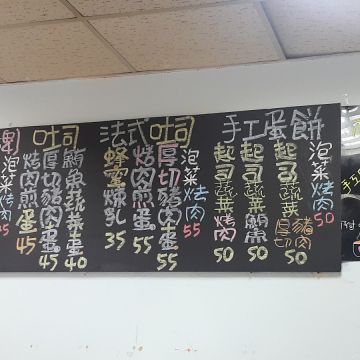 吐司
泡菜烤肉
烤肉煎蛋 45
厚切豬肉蛋 45
鮪魚蔬菜蛋 40
法式吐司
蜂蜜煉乳 35
烤肉煎蛋 55
厚切豬肉蛋 55
泡菜烤肉 55
手工蛋餅
起司蔬菜烤肉 50
起司蔬菜鮪魚 50
起司蔬菜厚切豬肉 50
泡菜烤肉 50